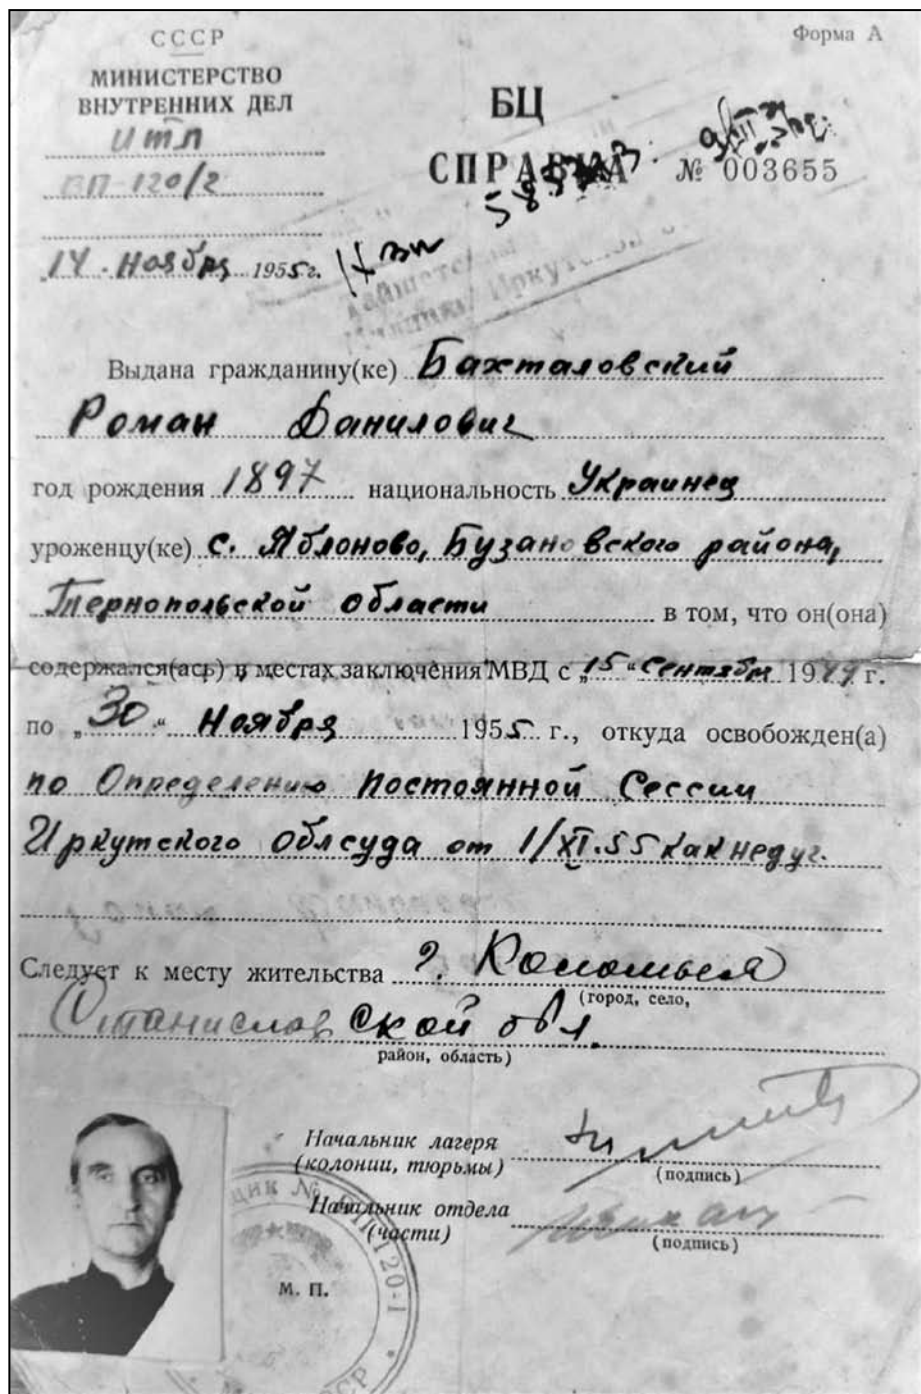 СССР
МИНИСТЕРСТВО
ВНУТРЕННИХ ДЕЛ
ИТЛ
ВП-120/2
14 Ноября 1955 г.
Форма А
БЦ
СПРАВКА № 003655
Выдана гражданину(ке) Бахталовский
Роман Данилович
год рождения 1897 национальность Украинец
уроженцу(ке) с. Яблоново, Бузановского района,
Тернопольской области в том, что он(она)
содержался(ась) в местах заключения МВД с „15“ Сентября 1949 г.
по „30“ Ноября 1955 г., откуда освобожден(а)
по Определению Постоянной Сессии
Иркутского Облсуда от 1/XI.55 как недуг.
Следует к месту жительства г. Коломыя
(город, село,
Станиславской обл.
район, область)
Начальник лагеря
(колонии, тюрьмы)
(подпись)
Начальник отдела
(части)
(подпись)
М. П.